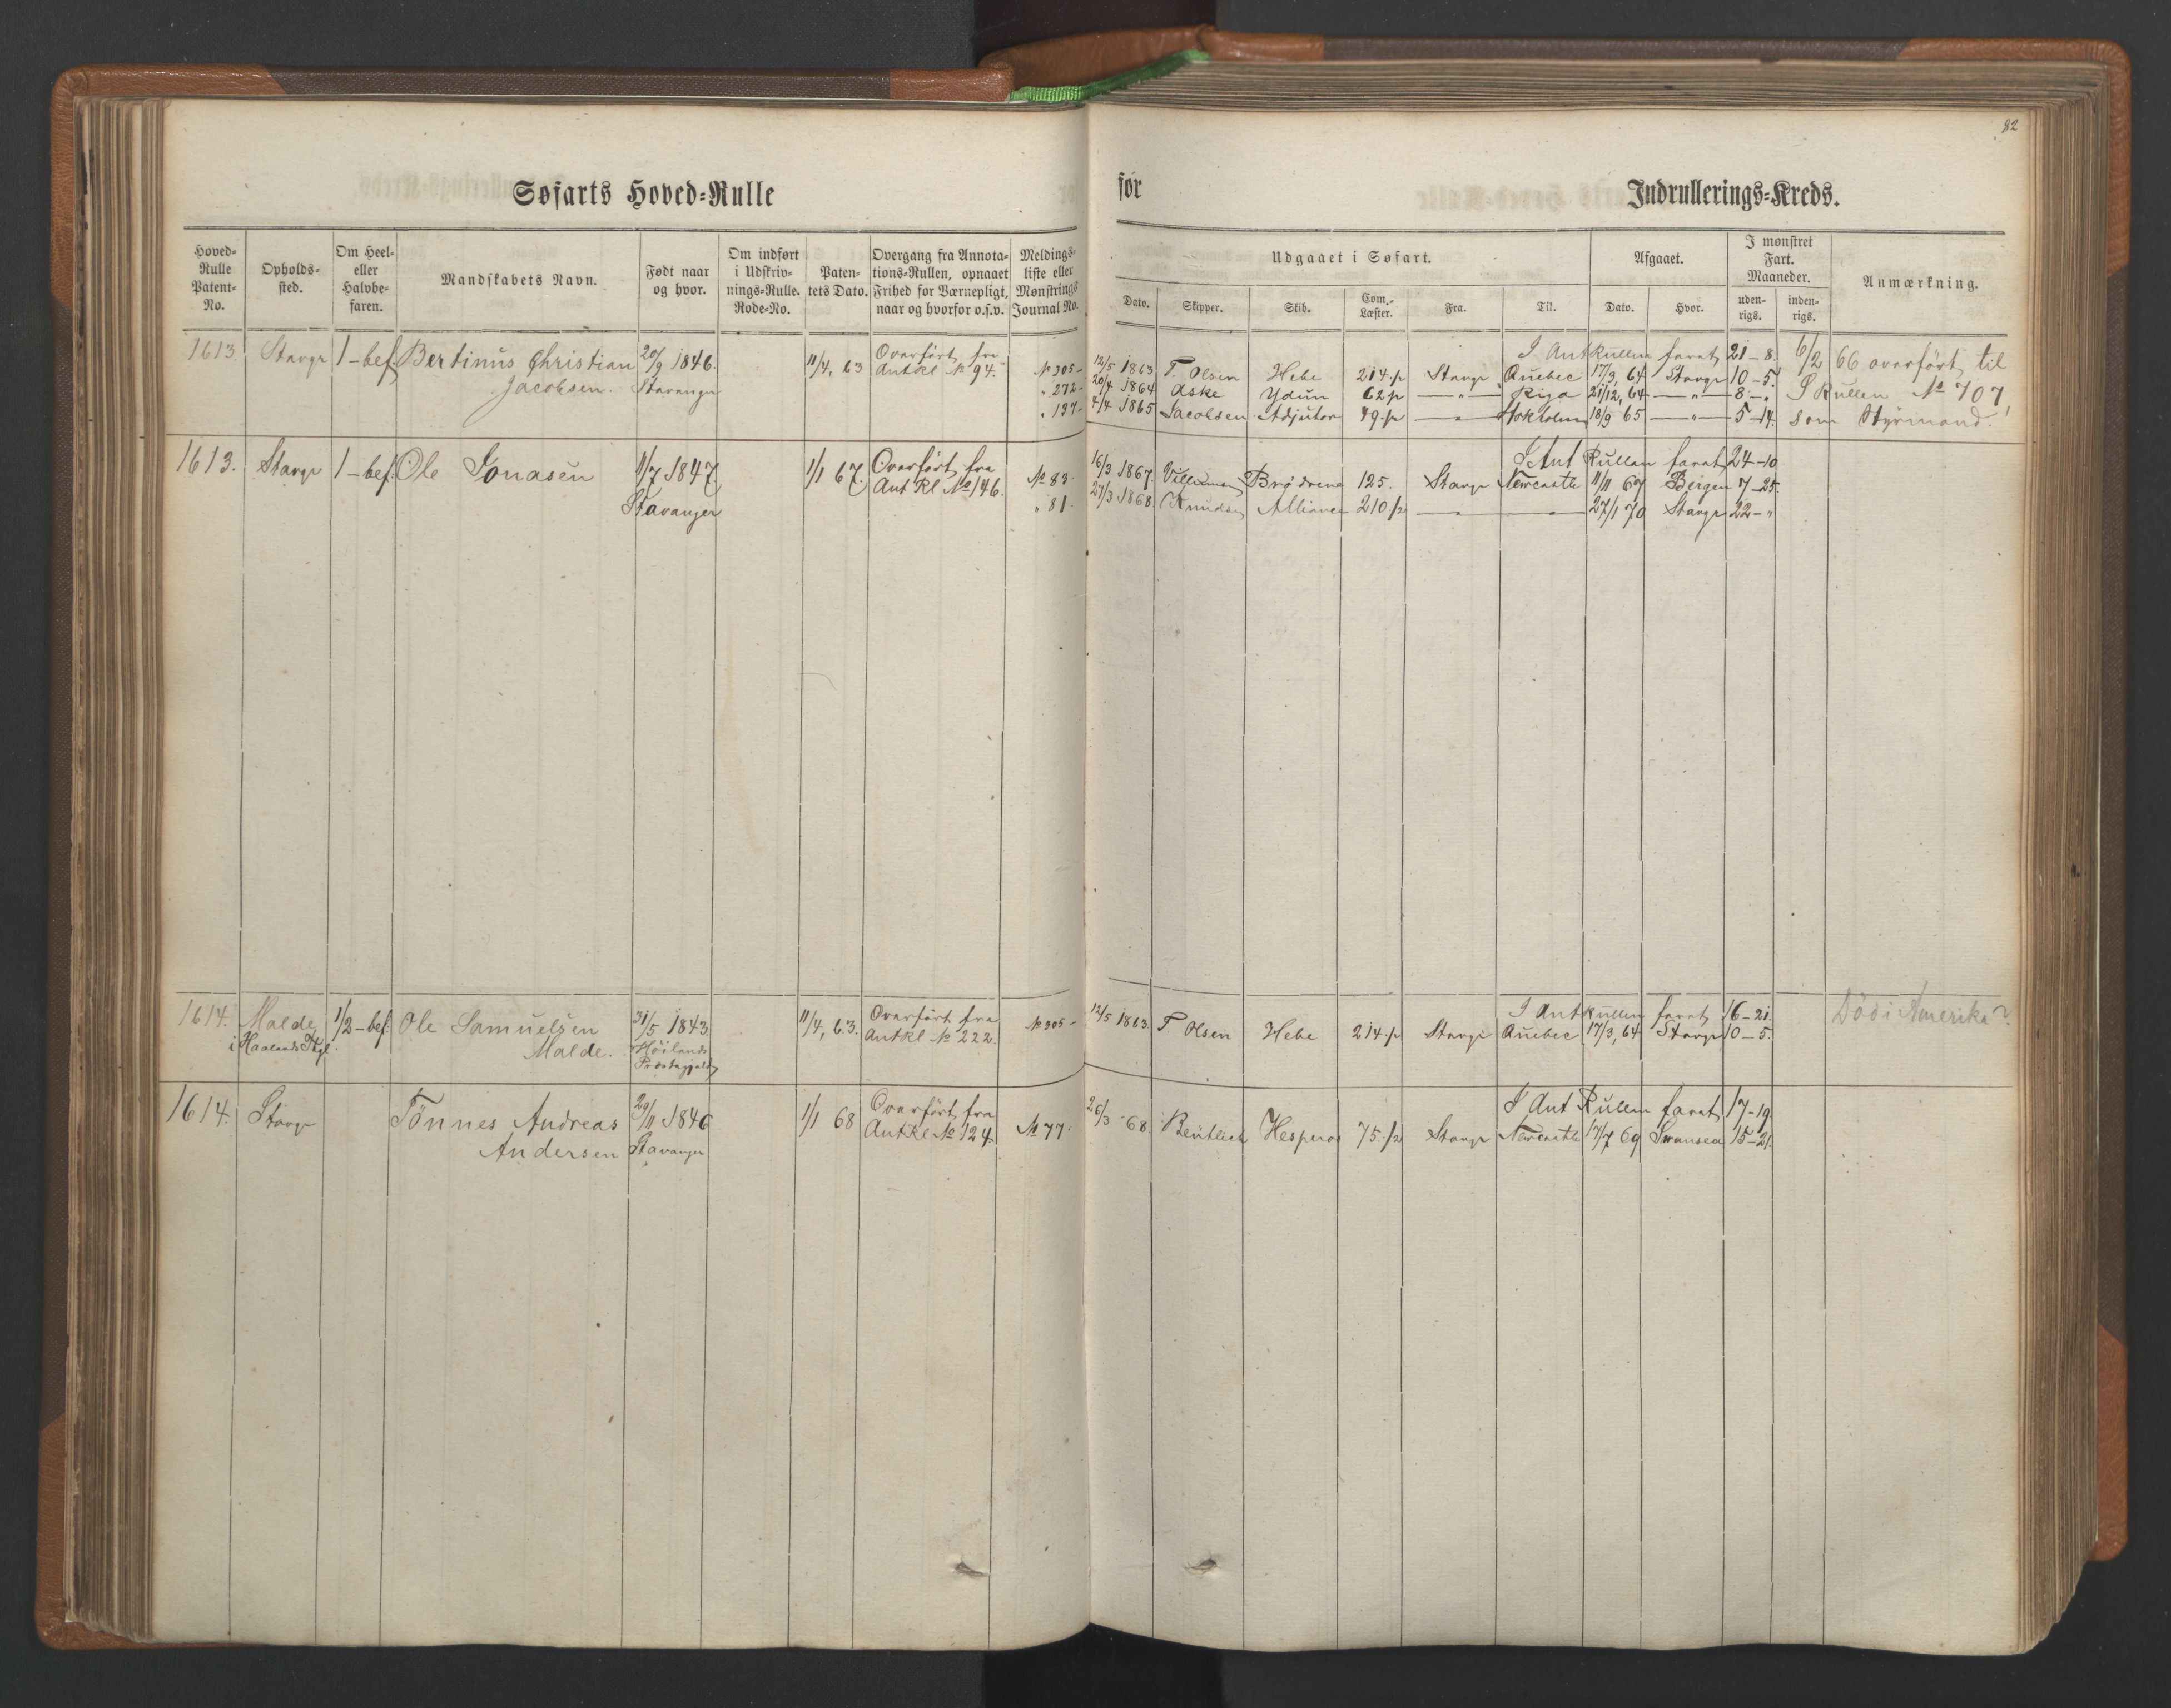 82
Søfarts Hoved-Rulle
for
Indrullerings-Kreds.
Hoved-Rulle Patent-No.
Opholds-sted.
Om Heel- eller Halvbe-faren.
Mandskabets Navn.
Født naar og hvor.
Om indført i Udskriv-nings-Rulle. Rode-No.
Paten-tets Dato.
Overgang fra Annota-tions-Rullen, opnaaet Frihed for Værnepligt, naar og hvorfor o.s.v.
Meldings-liste eller Mønstrings Journal No.
Udgaaet i Søfart.
Dato.
Skipper.
Skib.
Com.-Læster.
Fra.
Til.
Afgaaet.
Dato.
Hvor.
I mønstret Fart. Maaneder.
uden-rigs.
inden-rigs.
Anmærkning.
1613. Stavgr 1-bef Bertinus Christian 20/9 1846. 11/4, 63 Overført fra
Jacobsen. Stavanger Antkl № 94.
I Antkullen faret 21-8. 6/2 66 overført til
№ 305- 12/5 1863 T. Olsen Hebe 214 p Stavgr Quebec 17/3, 64 Stavgr 10-5.
" 272- 20/4 1864 Aske Ydun 62 p —"— Riga 21/12, 64 —"— 8-". S Rullen № 707,
" 197- 4/4 1865 Jacobsen Adjutor 79 p —"— Stokholm 18/9 65 —"— 5-14. som Styrmand.
1613. Stavgr 1-bef. Ole Jonasen 11/7 1847. 1/1 67. Overført fra
Stavanger Ant Rl № 146.
I Ant Rullen faret 24-10
№ 83. 16/3 1867. Villumsen Brødrene 125. Stavgr Newcastle 11/11 67 Bergen 7-25.
" 81. 27/3 1868. Knudsen Alliance 210 ½ —"— —"— 27/1 70 Stavgr 22-"
1614. Malde 1/2-bef. Ole Samuelsen 31/5 1843. 11/4, 63. Overført fra
i Haalands Thgl. Malde. Høilands Antkl № 222.
Præstegjæld
I Antkullen faret 16-21. Död i Amerika?
№ 305- 12/5 1863 T Olsen Hebe 214 p Stavgr Quebec 17/3, 64 Stavgr 10-5.
1614. Stavgr Tönnes Andreas 29/11 1846 1/1 68 Overført fra
Andersen Stavanger Antkl № 124.
I Ant Rullen faret 17-19
№ 77. 26/3 68. Beutlich Hesperos 75 ½ Stavgr Newcastle 17/7 69 Swansea 15-21.